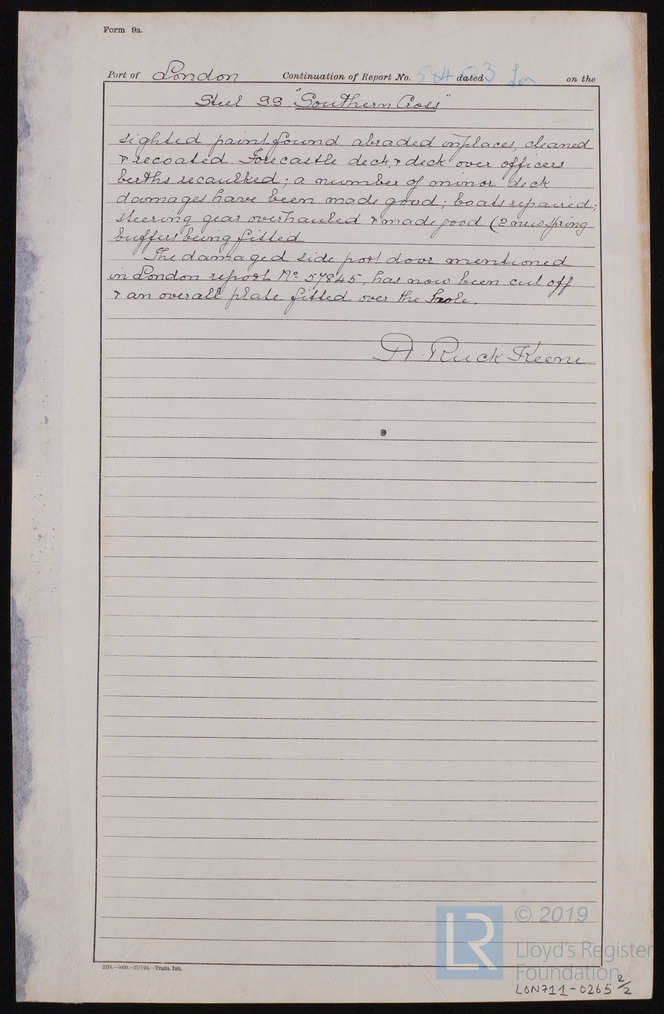 Form 9a.
Port of London Continuation of Report No. dated Lon on the
Steel S.S "Southern Cross"
sighted, paint found abraded in places, cleaned
& recoated. Forecastle deck, & deck over officers
berths recaulked; a number of minor deck
damages have been made good; boats repaired;
steering gear overhauled & made good (2 new spring
buffers being fitted
The damaged side port door mentioned
in London report No 57845, has now been cut off
& an overall plate fitted over the hole.
A. Ruck Keene
Trans. Ink.
LR © 2019
Lloyd's Register
Foundation
LON711-0265 2/2